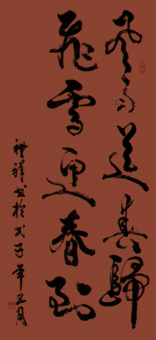 風雨送春歸
飛雪迎春到
书於戊子年五月